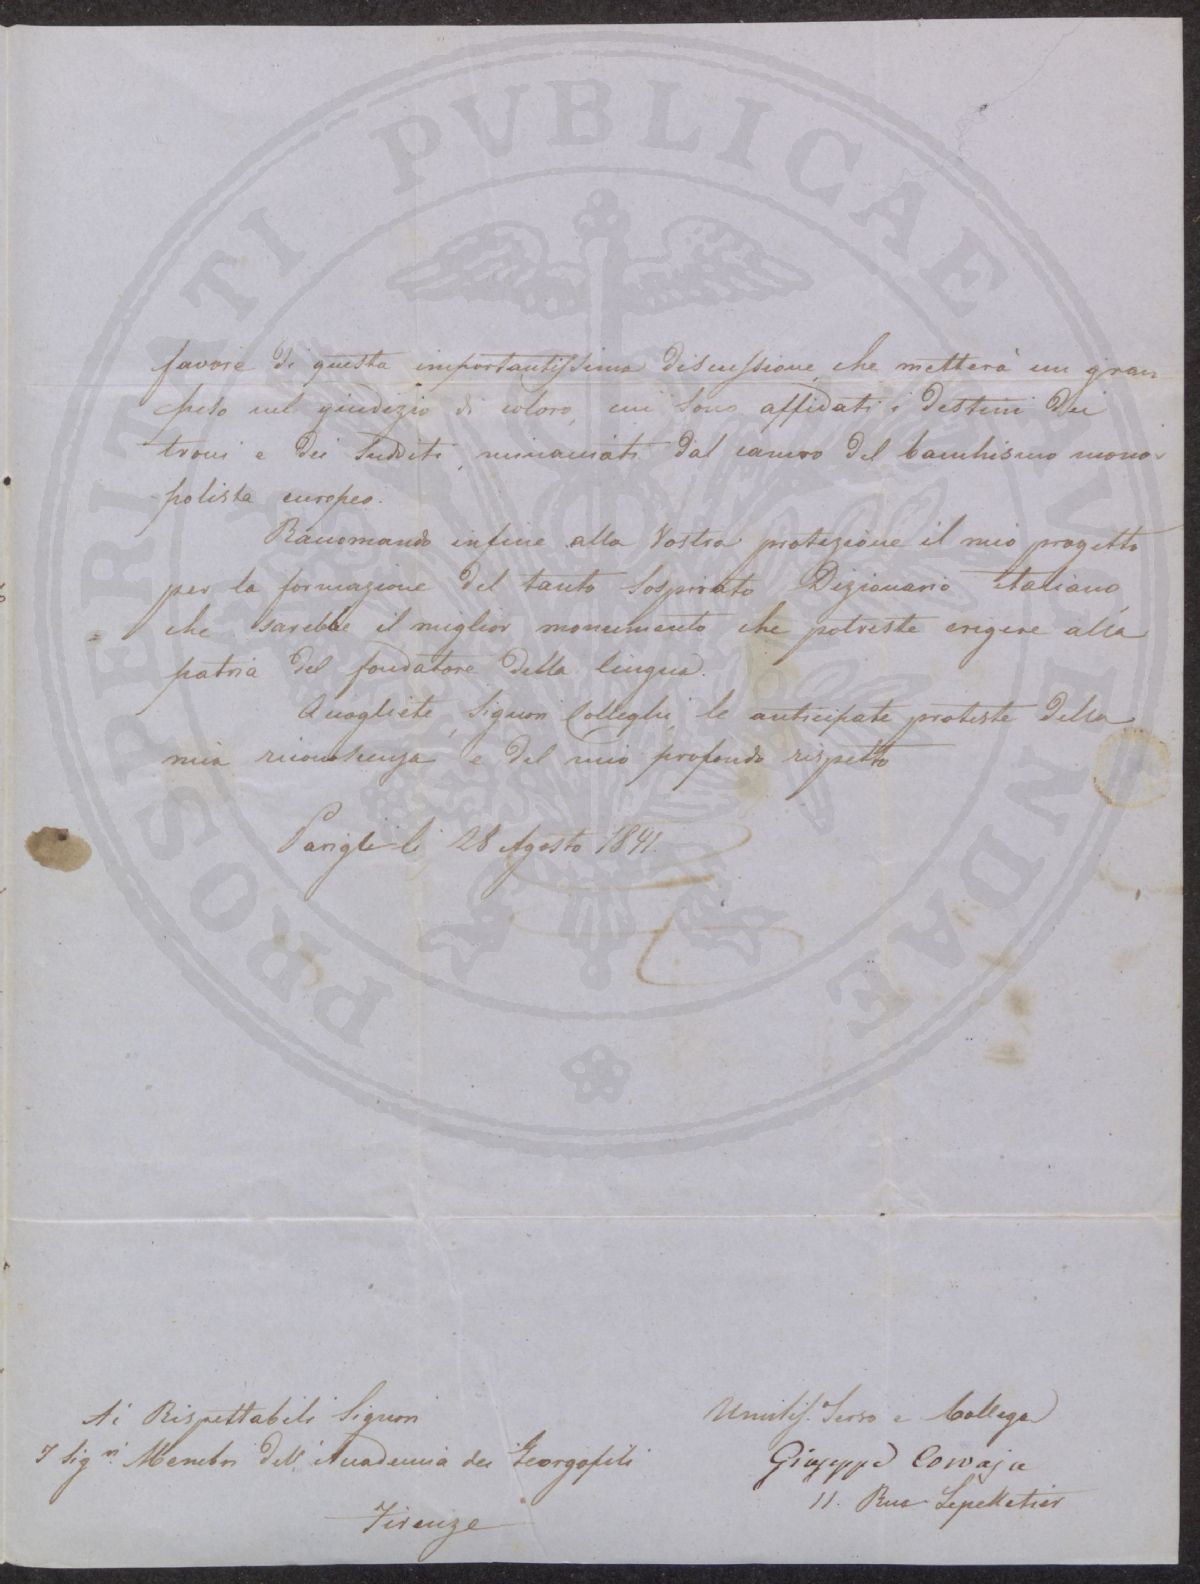 favore di questa importantissima discussione, che metterà un gran
peso nel giudizio di coloro, cui sono affidati i destini dei
troni e dei sudditi, minacciati dal cancro del banchismo mono-
polista europeo.
Raccomando infine alla Vostra protezione il mio progetto
per la formazione del tanto sospirato Dizionario italiano,
che sarebbe il miglior monumento che potreste erigere alla
patria del fondatore della lingua.
Accogliete, Signori Colleghi, le anticipate proteste della
mia riconoscenza e del mio profondo rispetto
Parigi li 28 Agosto 1841.
Umiliss. Servo e Collega
Giuseppe Corvaja
11. Rue Lepelletier
Ai Rispettabili Signori
I Sig.ri Membri dell'Accademia dei Georgofili
Firenze
PROSPERITATI PUBLICAE AUGENDAE